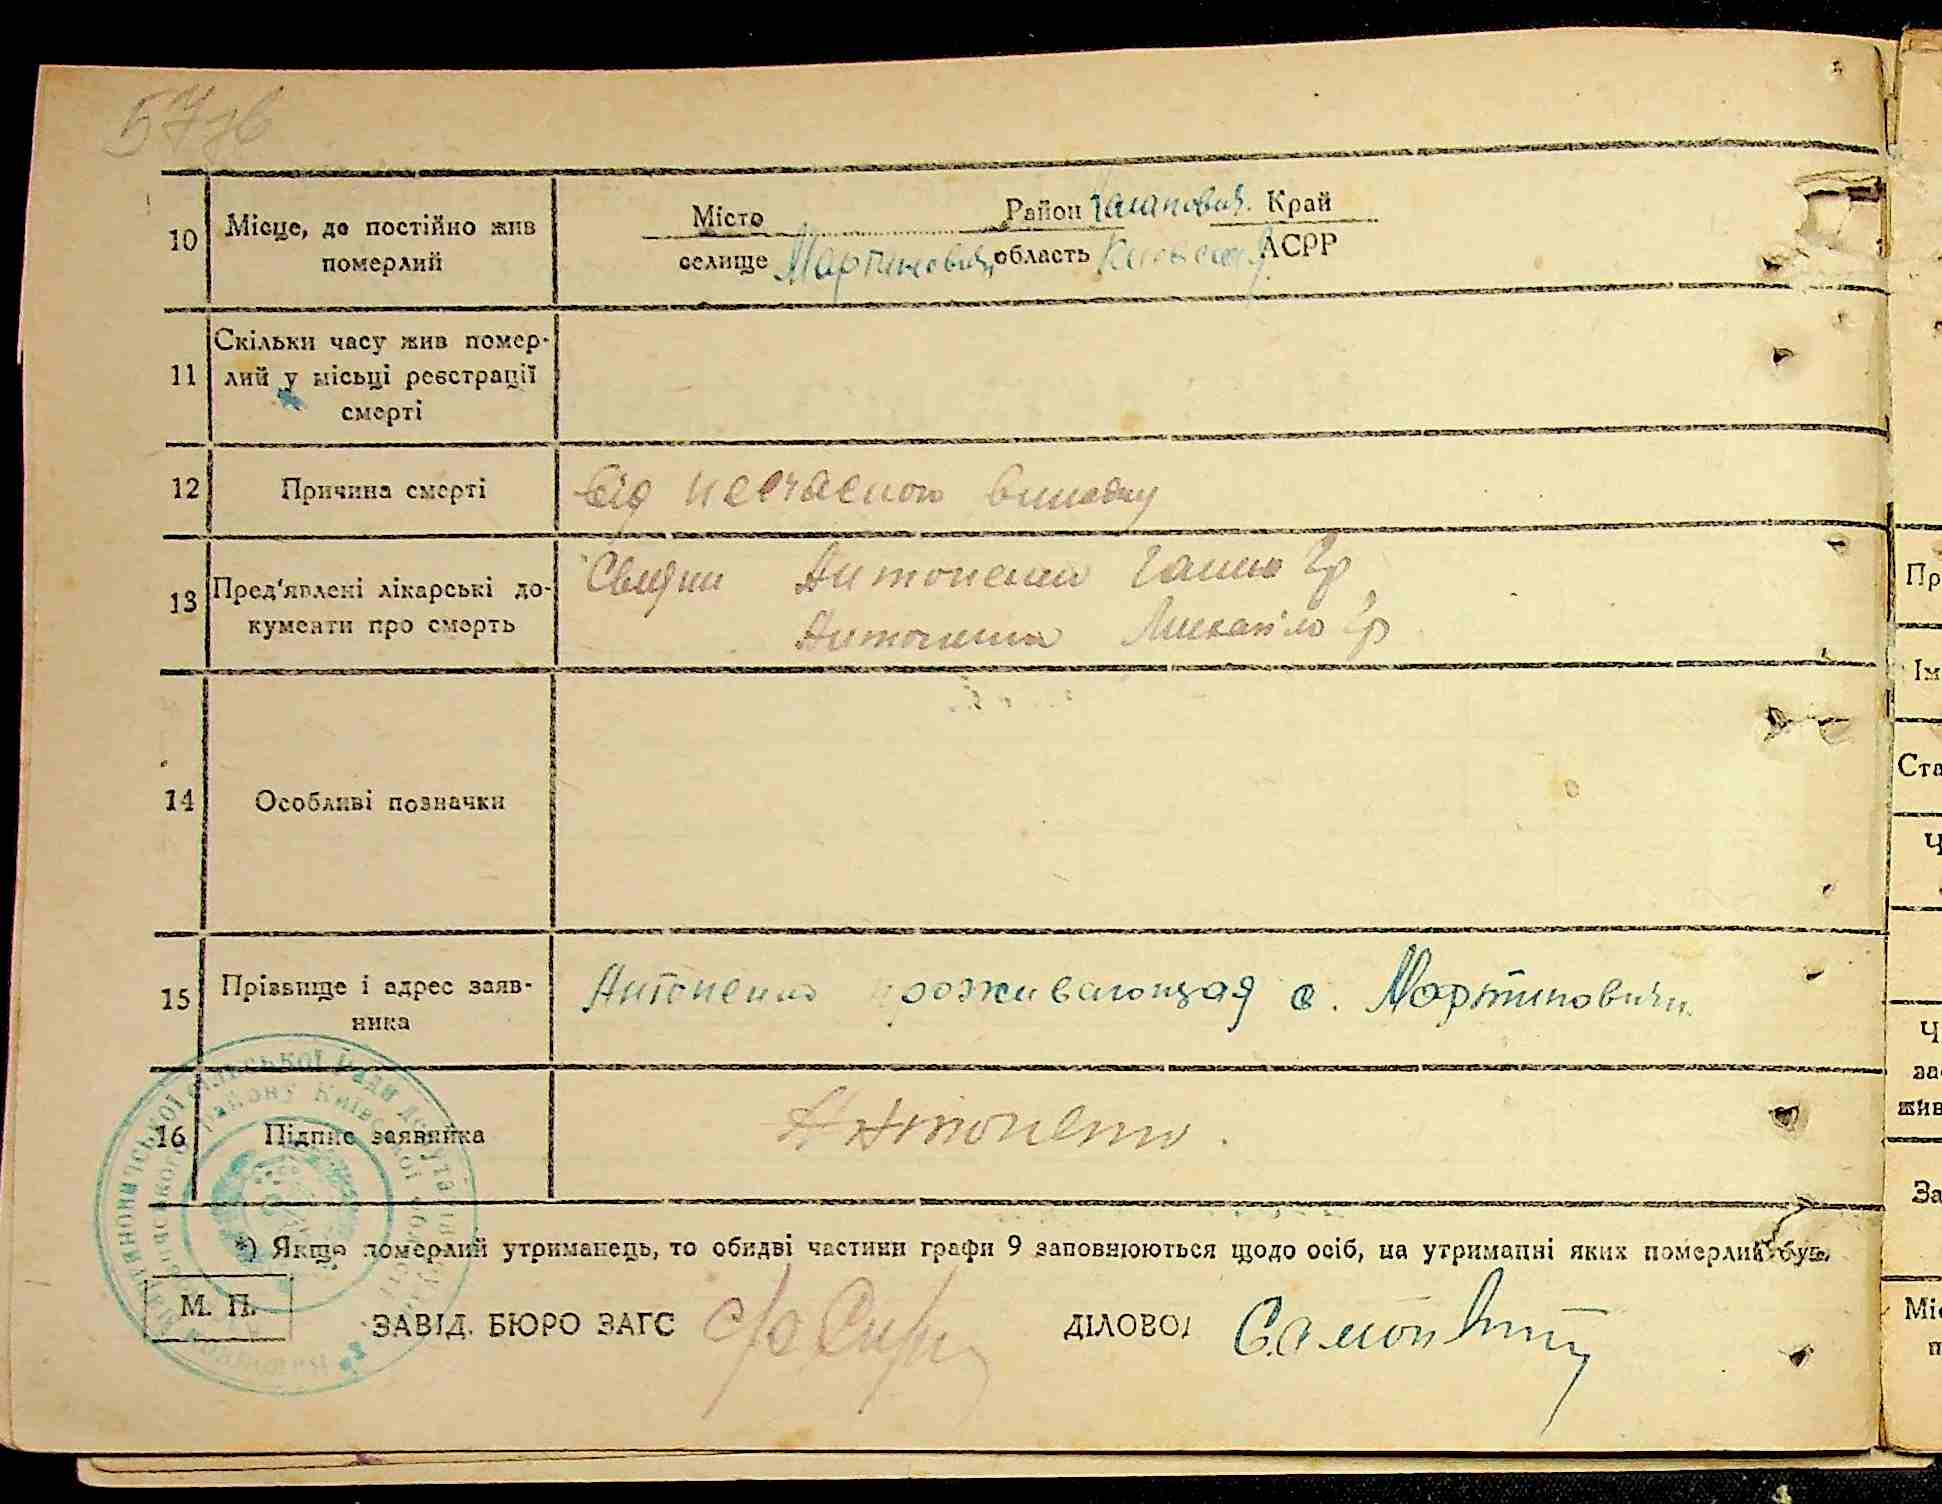 57зв
10 Місце, де постійно жив померлий
Місто Район Чагаловичі. Край
селище Мартиновичі область Київська АСРР
11 Скільки часу жив помер-
лий у місьці реєстрації
смерті
12 Причина смерті від несчасного випадку
13 Пред'явлені лікарські до-
кументи про смерть
Свідки Антоненко Ганна Гр
Антоненко Михайло Гр
14 Особливі позначки
15 Прізвище і адрес заяв-
ника
Антоненко проживающая с. Мартиновичи.
16 Підпис заявника Антоненко.
*) Якщо померлий утриманець, то обидві частини графи 9 заповнюються щодо осіб, на утриманні яких померлий був.
М. П. ЗАВІД. БЮРО ЗАГС ДІЛОВОД
сільської Ради депутатів
району Київської області
Пр
Ім
Ста
Ч
Ч
за
жив
За
Міс
п